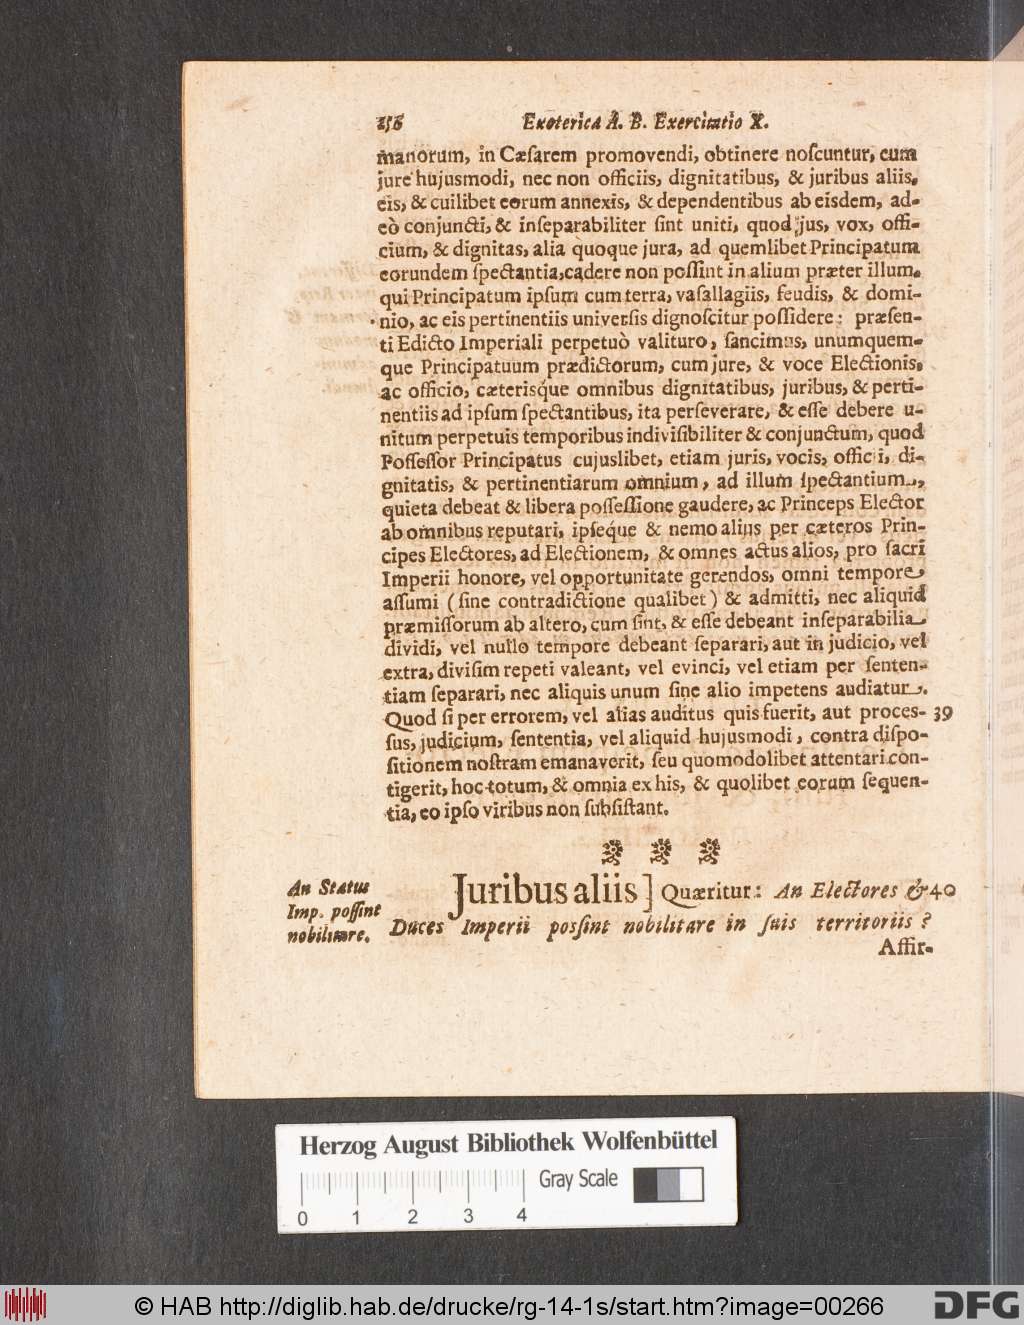 256 Exoterica A. B. Exercitatio X.
manorum, in Cæſarem promovendi, obtinere noſcuntur, cum
jure hujusmodi, nec non officiis, dignitatibus, & juribus aliis,
eis, & cuilibet eorum annexis, & dependentibus ab eisdem, ad-
eò conjuncti, & inſeparabiliter ſint uniti, quod jus, vox, offi-
cium, & dignitas, alia quoque jura, ad quemlibet Principatum
eorundem ſpectantia, cadere non poſſint in alium præter illum,
qui Principatum ipſum cum terra, vaſallagiis, feudis, & domi-
nio, ac eis pertinentiis univerſis dignoſcitur poſſidere: præſen-
ti Edicto Imperiali perpetuò valituro, ſancimus, unumquem-
que Principatuum prædictorum, cum jure, & voce Electionis,
ac officio, cæterisq́ue omnibus dignitatibus, juribus, & perti-
nentiis ad ipſum ſpectantibus, ita perſeverare, & eſſe debere u-
nitum perpetuis temporibus indiviſibiliter & conjunctum, quod
Poſſeſſor Principatus cujuslibet, etiam juris, vocis, officii, di-
gnitatis, & pertinentiarum omnium, ad illum ſpectantium,
quieta debeat & libera poſſeſſione gaudere, ac Princeps Elector
ab omnibus reputari, ipſeq́ue & nemo alius per cæteros Prin-
cipes Electores, ad Electionem, & omnes actus alios, pro ſacri
Imperii honore, vel opportunitate gerendos, omni tempore,
aſſumi ( ſine contradictione qualibet ) & admitti, nec aliquid
præmiſſorum ab altero, cum ſint, & eſſe debeant inſeparabilia,
dividi, vel nullo tempore debeant ſeparari, aut in judicio, vel
extra, diviſim repeti valeant, vel evinci, vel etiam per ſenten-
tiam ſeparari, nec aliquis unum ſine alio impetens audiatur.
Quod ſi per errorem, vel alias auditus quis fuerit, aut proces- 39
ſus, judicium, ſententia, vel aliquid hujusmodi, contra diſpo-
ſitionem noſtram emanaverit, ſeu quomodolibet attentari con-
tigerit, hoc totum, & omnia ex his, & quolibet eorum ſequen-
tia, eo ipſo viribus non ſubſiſtant.
An Status
Imp. poſſint
nobilitare.
Juribus aliis] Quæritur: An Electores & 40
Duces Imperii posſint nobilitare in ſuis territoriis?
Affir-
Herzog August Bibliothek Wolfenbüttel
Gray Scale
0 1 2 3 4
© HAB http://diglib.hab.de/drucke/rg-14-1s/start.htm?image=00266
DFG